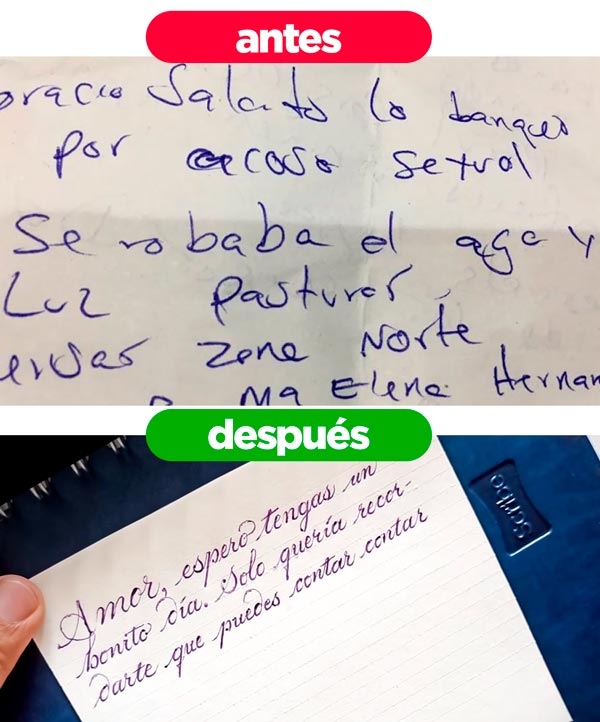 antes
oracio Salcito lo banqueo
por acoso sexual
Se robaba el aga y
Luz Pasturas
ervsas zona Norte
Ma Elena Hernan
después
Amor, espero tengas un
bonito día. Solo quería recor-
darte que puedes contar contar
Scribe